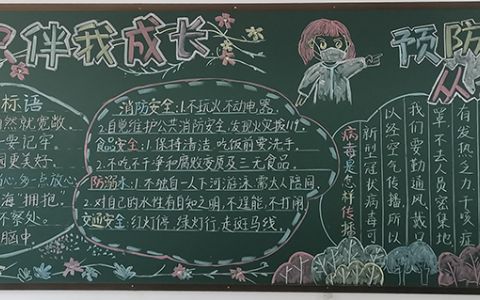 伴我成长
标语
然就宽敞
一要记牢
园更美好
心,多一点放心
海"拥抱
不察处
脑中
消防安全:1.不玩火不动电器。
2.自觉维护公共消防安全,发现火灾拨119.
食品安全:1.保持清洁,吃饭前要洗手。
2.不吃不干净和腐败变质及三无食品。
防溺水:1.不独自一人下河游泳,需大人陪同
2.对自己的水性有自知之明,不逞能,不打闹
交通安全:红灯停,绿灯行,走斑马线。
预防
从
病毒是怎样传播
新型冠状病毒可
以经空气传播,所以
我们要勤通风戴口
罩不去人员密集地
有发热乏力干咳症